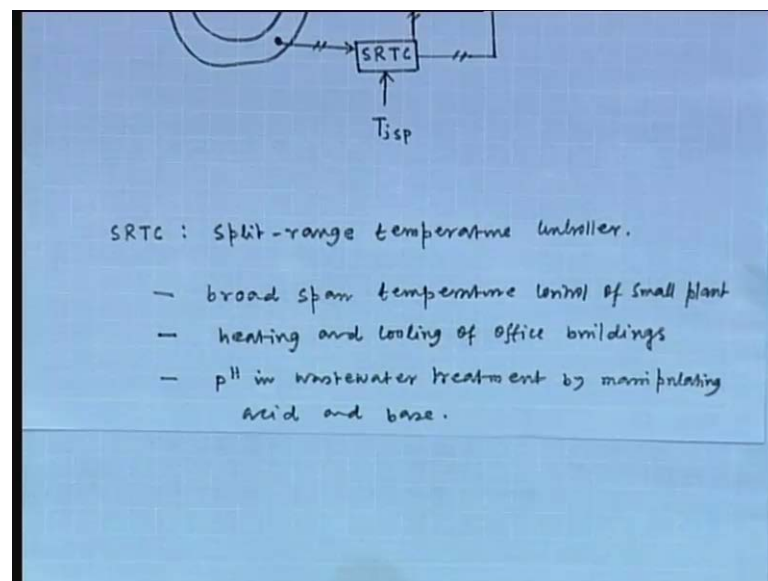 SRTC
Tjsp
SRTC : Split-range temperature controller.
— broad span temperature control of small plant
— heating and cooling of office buildings
— pH in wastewater treatment by manipulating
acid and base.